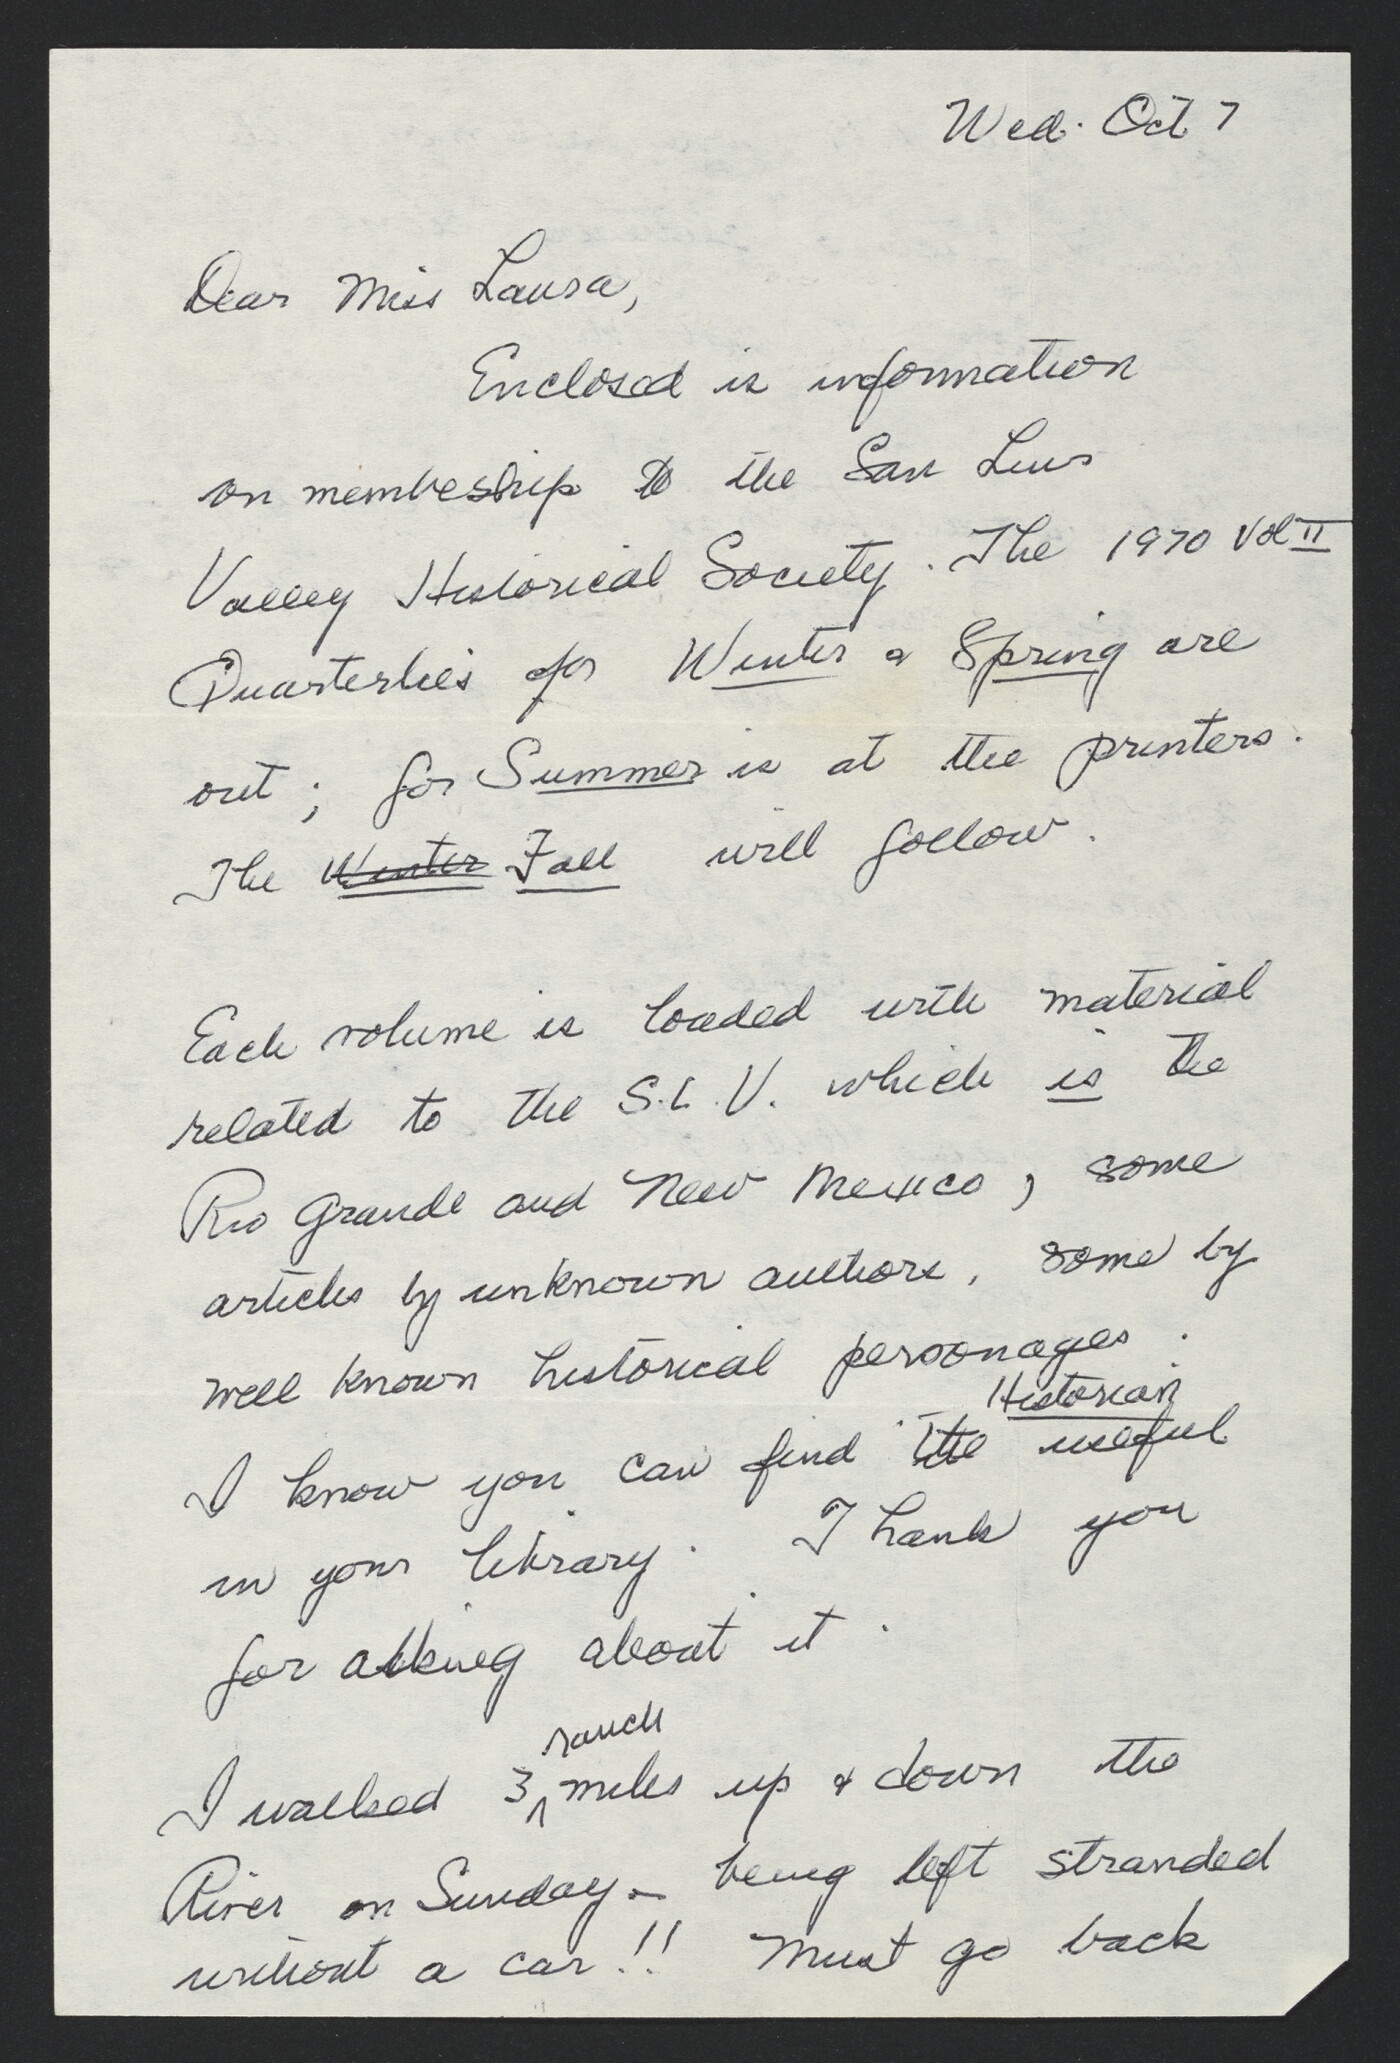 Wed. Oct 7
Dear Miss Laura,
Enclosed is information
on membeship to the San Luis
Valley Historical Society. The 1970 Vol II
Quarterlies for Winter & Spring are
out; for Summer is at the printers.
The Winter Fall will follow.
Each volume is loaded with material
related to the S.L.V. which is the
Rio Grande and New Mexico, some
articles by unknown authors, some by
well known historical personages.
Historian
I know you can find the useful
in your library. Thank you
for asking about it.
ranch
I walked 3 miles up & down the
River on Sunday - being left stranded
without a car!! Must go back